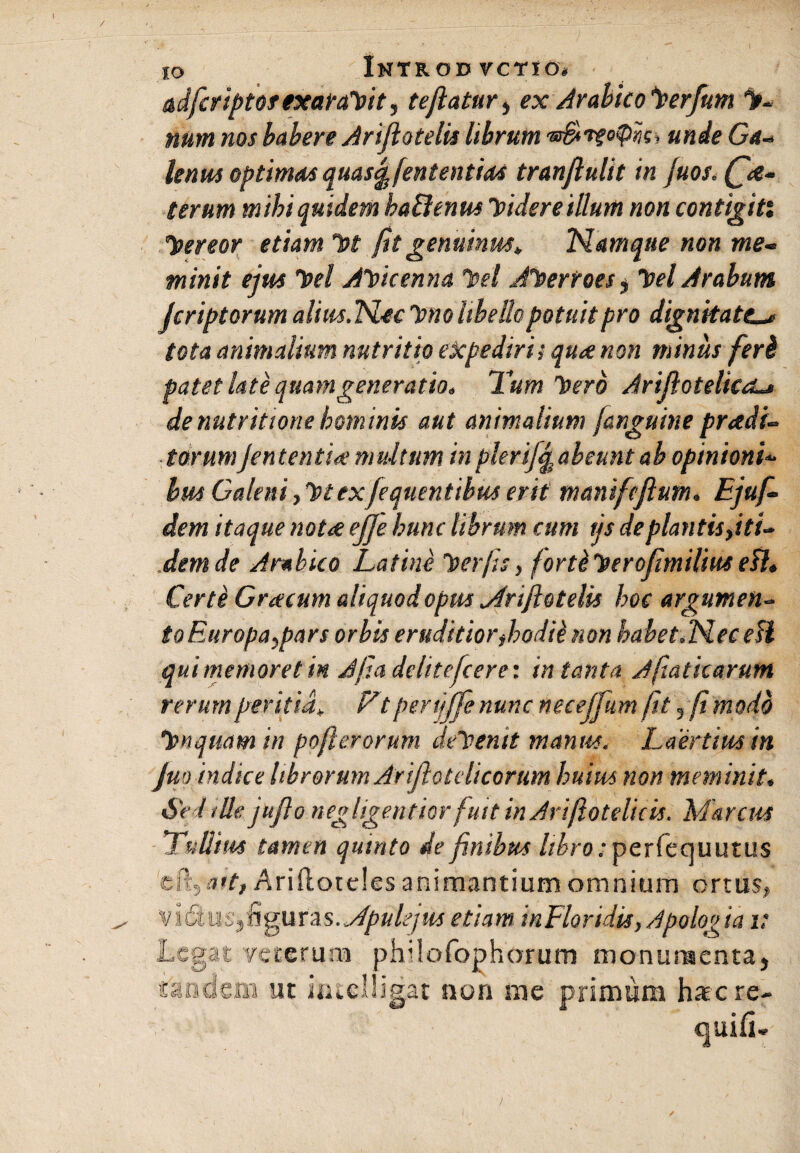 10 INTRODVCTIO.
adſcriptos exaraVit, teſtatur, ex Arabico Verſum V-
num nos habere Ariſtotelis librum περὶ τροφῆς, unde Ga-
lenus optimas quasq; ſententias tranſtulit in ſuos. Cæ-
terum mihi quidem hactenus Videre illum non contigit:
Vereor etiam Vt ſit genuinus. Namque non me-
minit ejus Vel AVicenna Vel AVerroes, Vel Arabum
ſcriptorum alius. Nec Vno libello potuit pro dignitate
tota animalium nutritio expediri; quæ non minùs ferè
patet latè quam generatio. Tum Verò Ariſtotelica
de nutritione hominis aut animalium ſanguine prædi-
torum ſententiæ multum in pleriſq; abeunt ab opinioni-
bus Galeni, Vt ex ſequentibus erit manifeſtum. Ejuſ-
dem itaque notæ eſſe hunc librum cum ijs de plantis, iti-
dem de Arabico Latinè Verſis, fortè Veroſimilius eſt.
Certè Græcum aliquod opus Ariſtotelis hoc argumen-
to Europa, pars orbis eruditior, hodiè non habet. Nec eſt
qui memoret in Aſia deliteſcere: in tanta Aſiaticarum
rerum peritiâ. Vt perijſſe nunc neceſſum ſit, ſi modò
Vnquam in poſterorum deVenit manus. Laërtius in
ſuo indice librorum Ariſtotelicorum huius non meminit.
Sed ille juſto negligentior fuit in Ariſtotelicis. Marcus
Tullius tamen quinto de finibus libro: perſequutus
eſt, ait, Ariſtoteles animantium omnium ortus,
victus, figuras. Apulejus etiam in Floridis, Apologia 1:
Legat veterum philoſophorum monumenta,
tandem ut intelligat non me primùm hæc re-
quiſi-